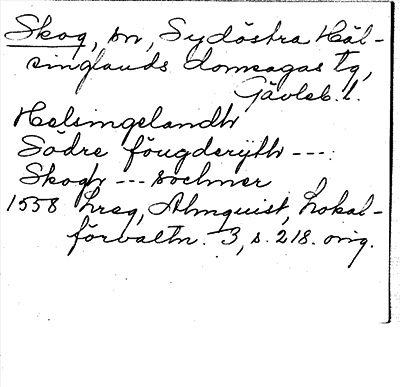 Skog, sn, Sydöstra Häl-
singlands domsagas tg,
Gävleb. l.
Helsingelandh
Södre fougderijth ---:
Skogh --- sochner
1558 hreg, Almquist, Lokal-
förvaltn. 3, s. 218. orig.